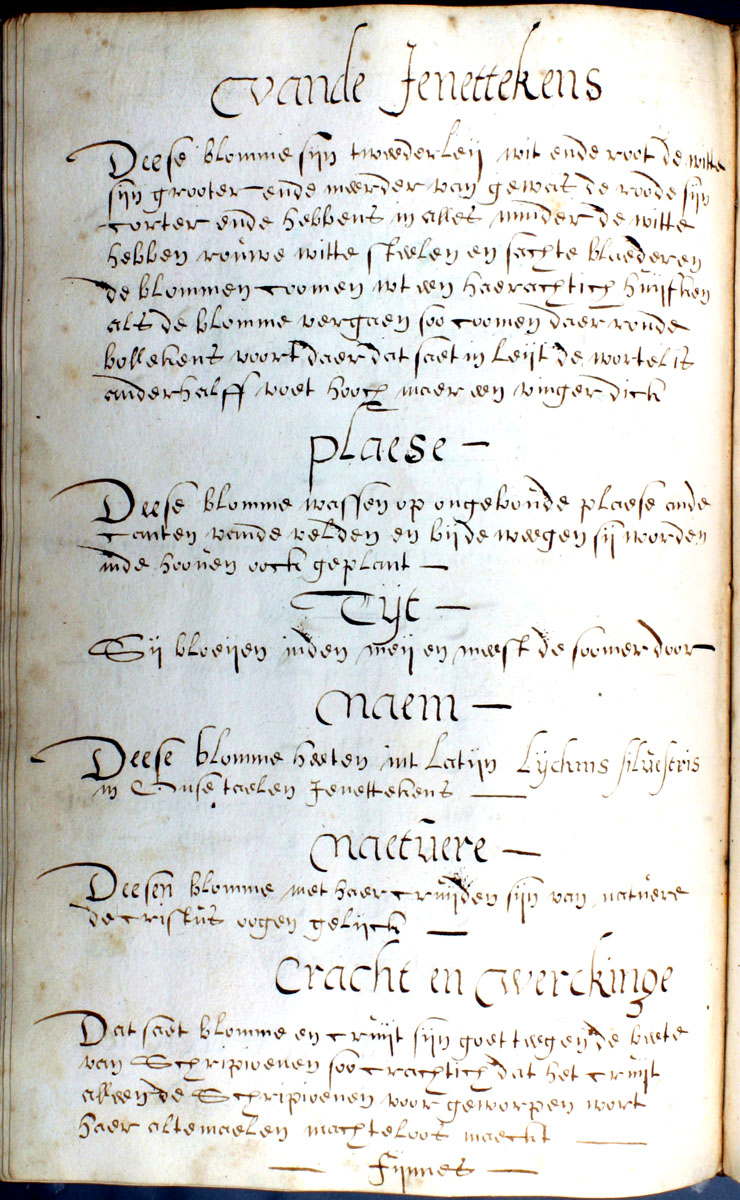 Vande Jenettekens
Deese blomme sijn tweederleij wit ende root de witte
sijn grooter ende meerder van gewas de roode sijn
corter ende hebbens in alles minder de witte
hebben rouwe witte steelen en sachte blaederen
de blommen coomen wt een haerachtich huijfken
als de blomme vergaen soo coomen daer ronde
bollekens voort daer dat saet in leijt de wortel is
anderhalff voet hooch maer een vinger dick
Plaese —
Deese blomme wassen op ongeboude plaese ande
canten vande velden en bijde weegen sij worden
inde hooven oock geplant —
Tijt —
Sij bloeijen inden meij en meest de soomer door
Naem —
Deese blomme heeten int Latijn Lijchnis silvestris
in Onse taelen Jenettekens —
Naetuere —
Deesen blomme met haer cruijden sijn van natuere
de cristus oogen gelijck —
Cracht en Werckinge
Dat saet blomme en cruijt sijn goet teegen de beete
van Schripioenen soo crachtich dat het cruijt
alleen de Schripioenen voor geworpen wort
haer altemaelen machteloos maeckt —
— Fijnnes —